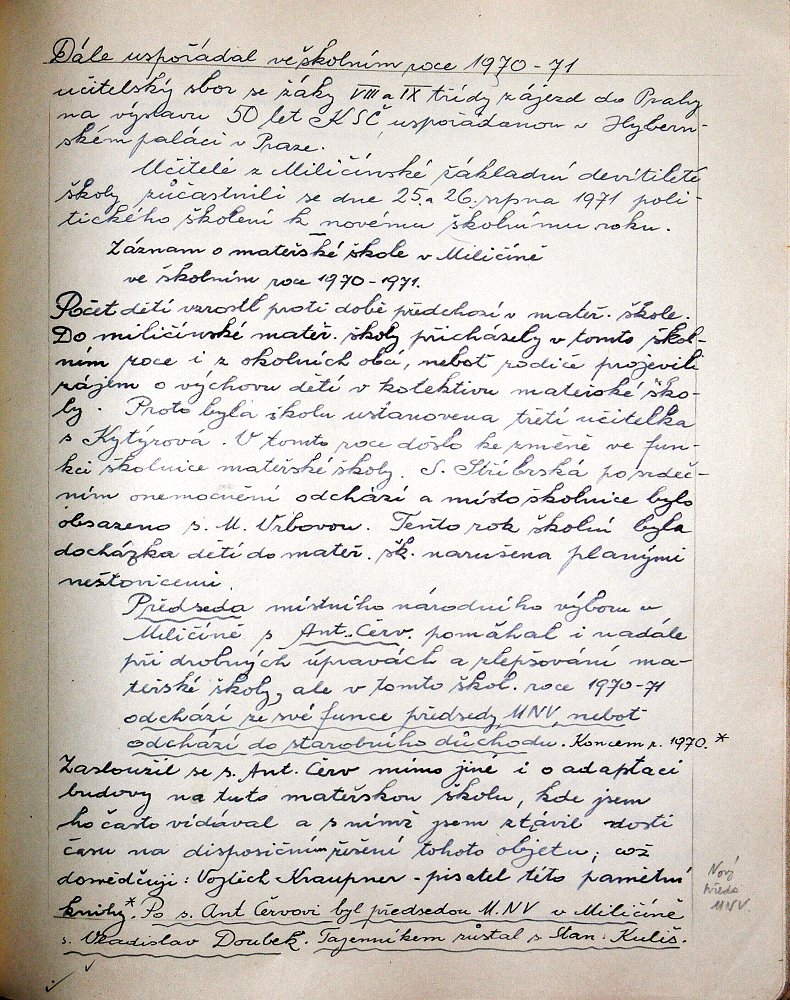 Dále uspořádal ve školním roce 1970-71
učitelský sbor se žáky VIII a IX třídy zájezd do Prahy
na výstavu 50 let KSČ, uspořádanou v Hybern-
ském paláci v Praze.
Učitelé z Miličínské základní devítileté
školy zúčastnili se dne 25. a 26. srpna 1971 poli-
tického školení k novému školnímu roku.
Záznam o mateřské škole v Miličíně
ve školním roce 1970-1971.
Počet dětí vzrostl proti době předchozí v mateř. škole.
Do miličínské mateř. školy přicházely v tomto škol-
ním roce i z okolních obcí, neboť rodiče projevili
zájem o výchovu dětí v kolektivu mateřské ško-
ly. Proto byla škole ustanovena třetí učitelka
s Kytýrová. V tomto roce došlo ke změně ve fun-
kci školnice mateřské školy. S. Stříbrská po srdeč-
ním onemocnění odchází a místo školnice bylo
obsazeno s. M. Vrbovou. Tento rok školní byla
docházka dětí do mateř. šk. narušena planými
neštovicemi.
Předseda místního národního výboru v
Miličíně s Ant. Červ. pomáhal i nadále
při drobných úpravách a zlepšování ma-
teřské školy, ale v tomto škol. roce 1970-71
odchází ze své funce předsedy MNV, neboť
odchází do starobního důchodu. Koncem r. 1970.*
Zasloužil se s. Ant. Červ mimo jiné i o adaptaci
budovy na tuto mateřskou školu, kde jsem
ho často vídával a s nímž jsem ztrávil dosti
času na disposičním řešení tohoto objetu; což
dosvědčuji: Vojtěch Kraupner - pisatel této pamětní
knihy.* Po s. Ant Červovi byl předsedou M.NV v Miličíně
s. Vladislav Doubek. Tajemníkem zůstal s Stan. Kuliš.
Nový
předs
MNV.